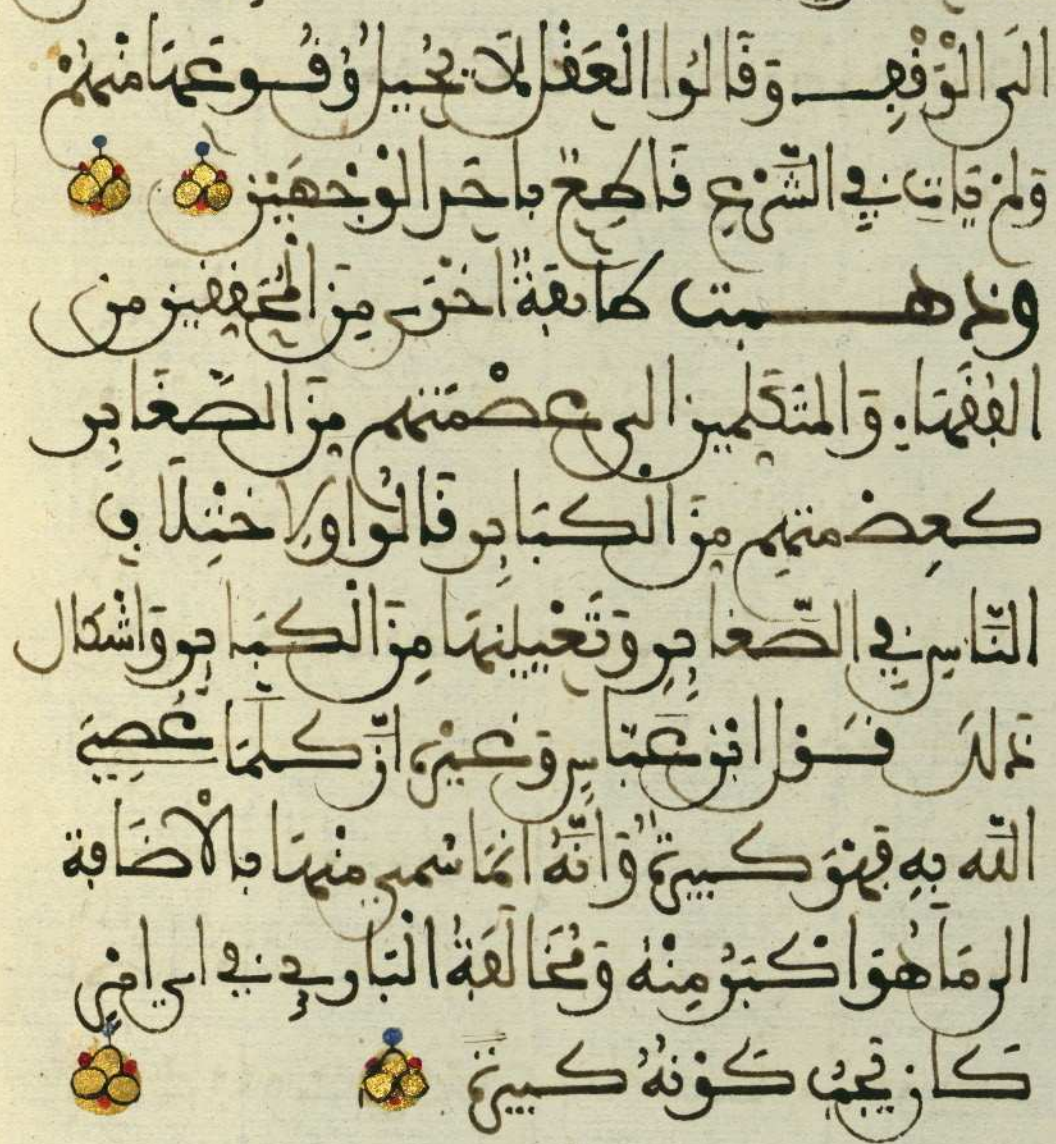 الى الْوَقْفِ وَقَالُوا الْعَقْل لَا يُحِيلُ وُقُوعَهَا مِنْهُمْ
وَلَمْ يَاتِ فِي الشَّرْعِ قَاطِعٌ بِاحَدِ الْوَجْهَيْنِ
وذهبت طائفةٌ اخرى مِنَ الْمُحَقِّقِين من
الفُقَهَاءِ وَالمتَكَلِّمين الى عِصْمَتِهم مِنَ الصَّغَايِر
كعِصْمتِهِم مِنَ الْكبَايِر قَالُوا ولِاخْتِلَافِ
النَّاسِ فِي الصَّغايِرِ وَتَعْيِينِهَا مِنَ الْكَبَايِرِ وَاشْكال
ذلكَ وَقَوْلِ ابْنِ عَبَّاسٍ وَغَيْرِهِ انَّ كلَّمَا عُصِيَ
اللّه بِهِ فَهْوَ كَبِيرَةٌ وَانَّهُ انمَا سُمي مِنْهَا بِالْاضَافة
الى مَا هُوَ اكْبَرُ مِنْهُ وَمُخَالَفَةُ الْبَاري فِي اي امْرٍ
كَان يَجِبُ كَوْنهُ كَبيرَةً